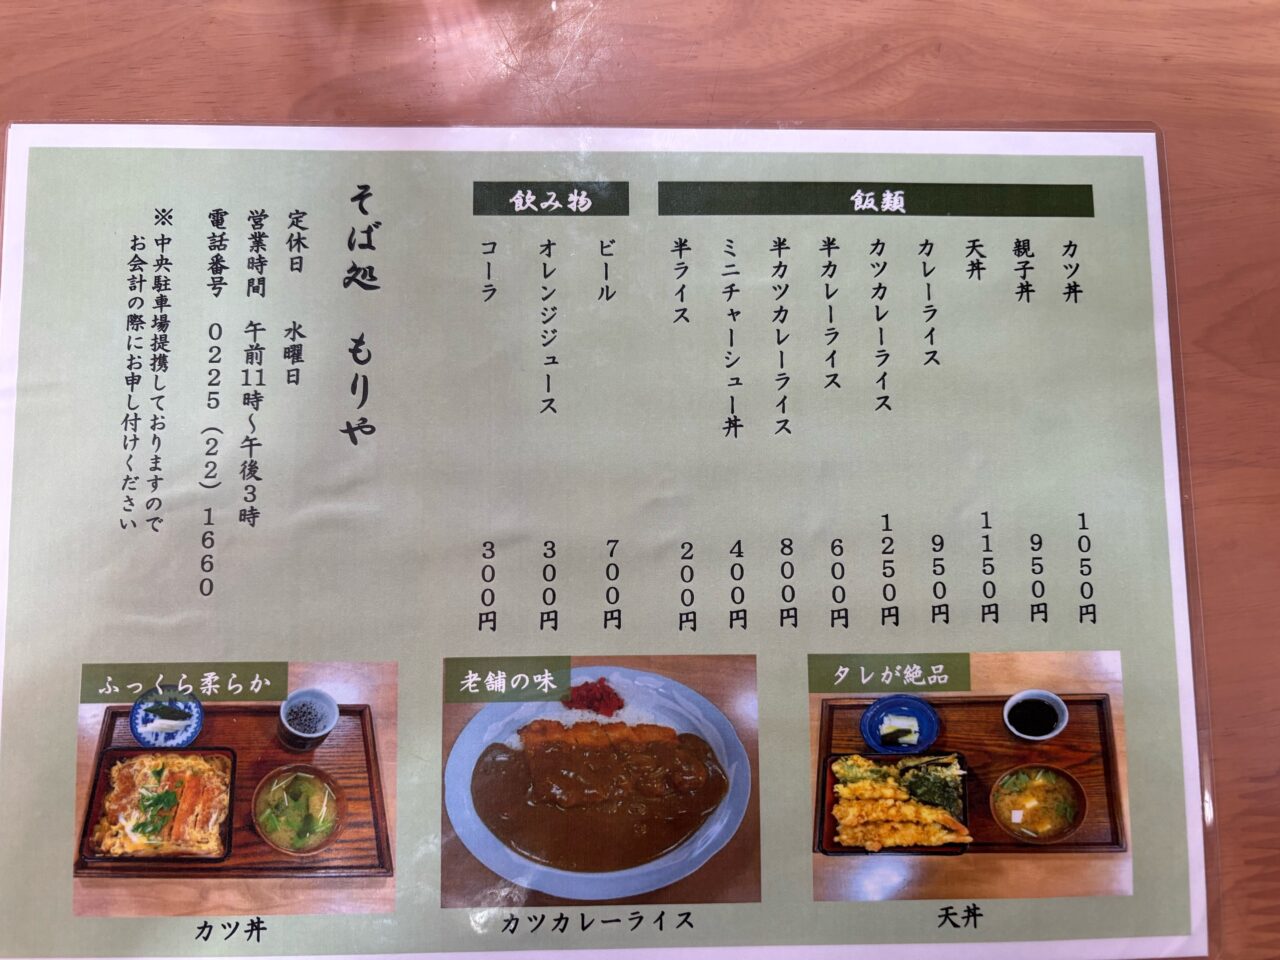 飯類
カツ丼 1050円
親子丼 950円
天丼 1150円
カレーライス 950円
カツカレーライス 1250円
半カレーライス 600円
半カツカレーライス 800円
ミニチャーシュー丼 400円
半ライス 200円
飲み物
ビール 700円
オレンジジュース 300円
コーラ 300円
そば処 もりや
定休日 水曜日
営業時間 午前11時～午後3時
電話番号 0225(22)1660
※中央駐車場提携しておりますので
お会計の際にお申し付けください
タレが絶品
天丼
老舗の味
カツカレーライス
ふっくら柔らか
カツ丼